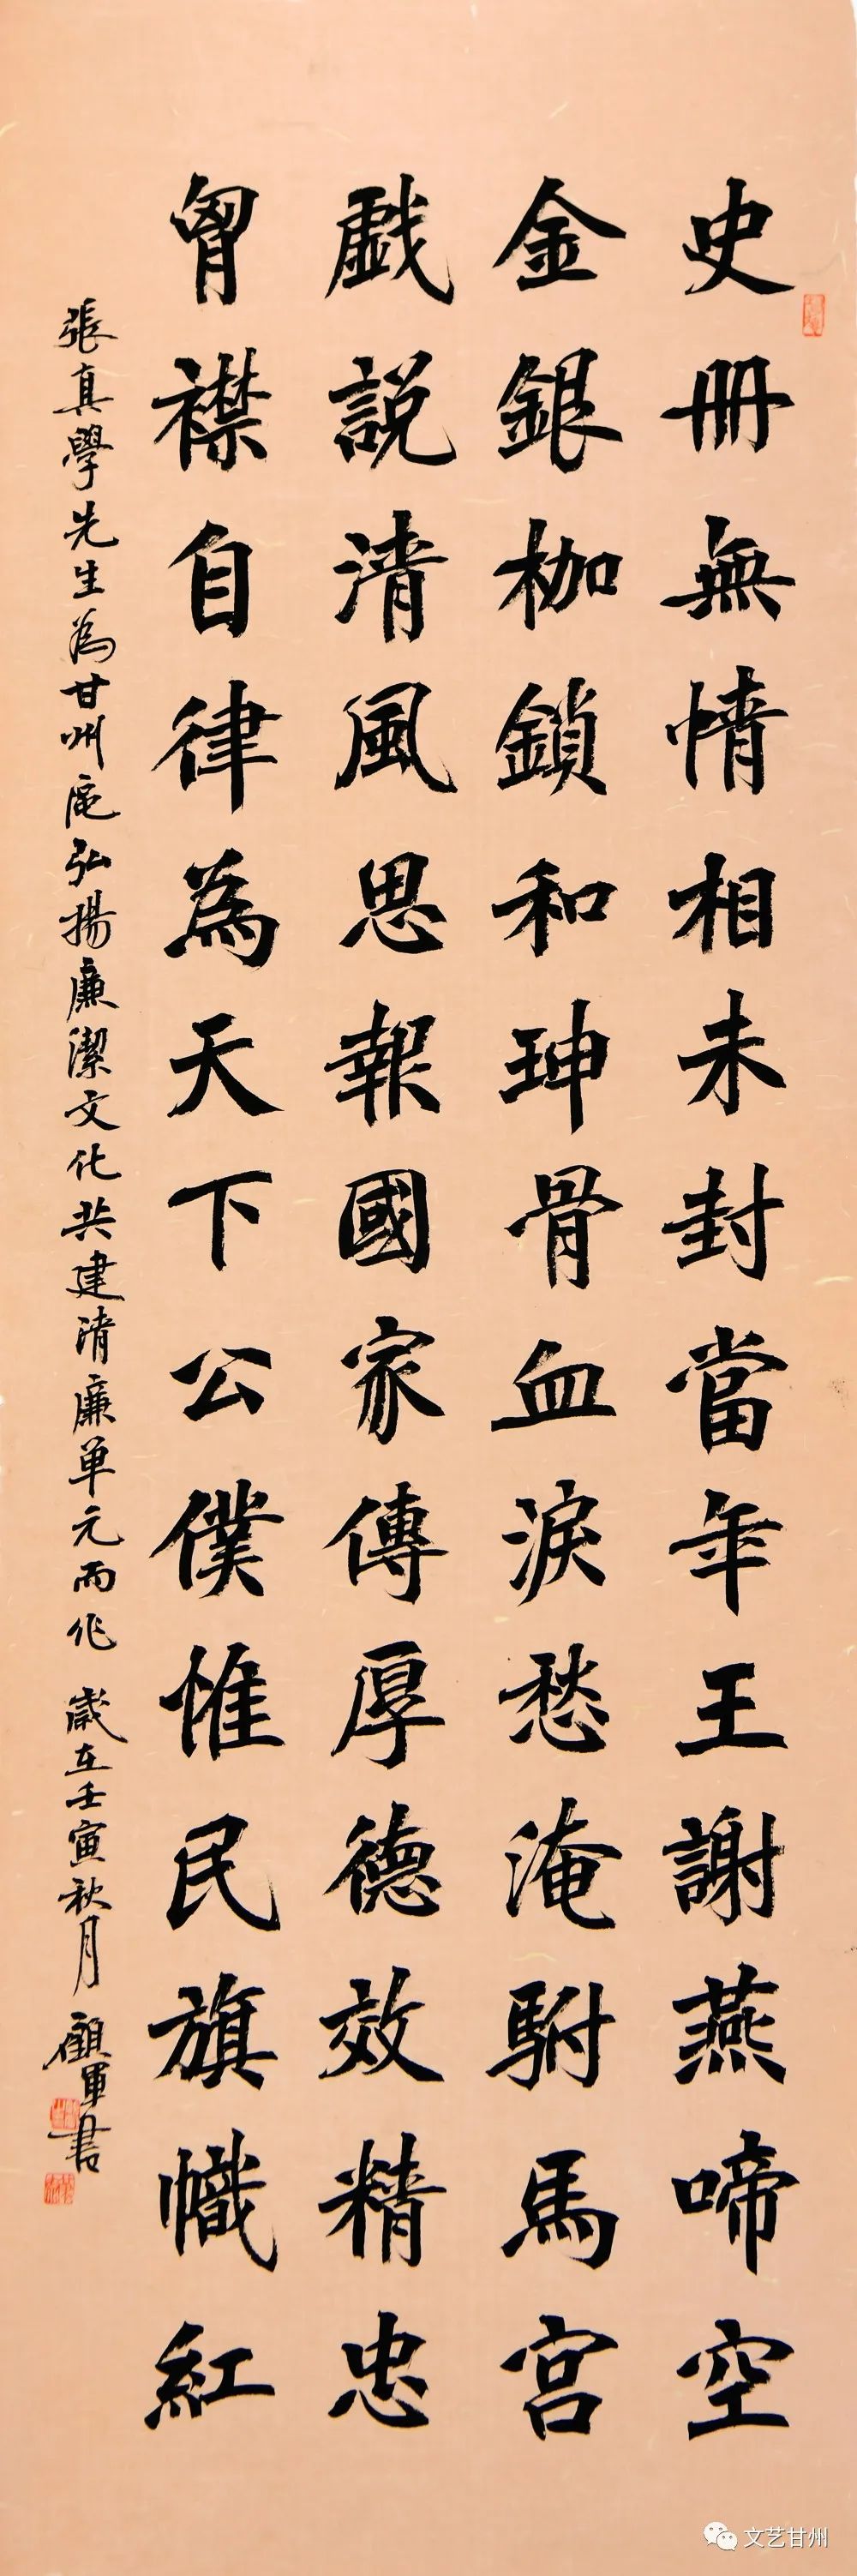 史册無情相未封當年王謝燕啼空
金銀枷鎖和珅骨血淚愁淹駙馬宫
戯説清風思報國家傳厚德效精忠
胷襟自律為天下公僕惟民旗幟紅
張真學先生為甘州區弘揚廉潔文化共建清廉单元而作 歲在壬寅秋月 顧軍書
文艺甘州